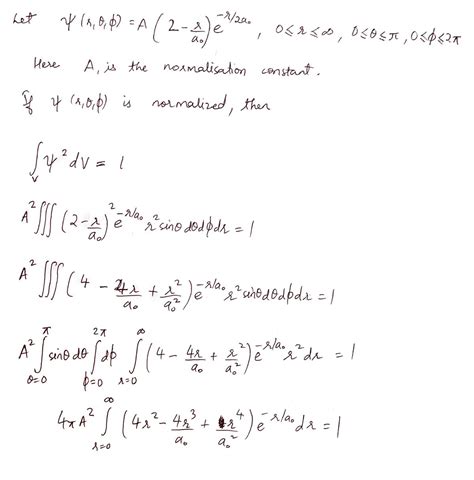 Let ψ(r,θ,φ) = A (2 - r/a₀) e^(-r/2a₀), 0≤r≤∞, 0≤θ≤π, 0≤φ≤2π
Here A, is the normalisation constant.
If ψ(r,θ,φ) is normalized, then
∫_V ψ² dV = 1
A² ∭ (2 - r/a₀)² e^(-r/a₀) r² sinθ dθ dφ dr = 1
A² ∭ (4 - 4r/a₀ + r²/a₀²) e^(-r/a₀) r² sinθ dθ dφ dr = 1
A² ∫_(θ=0)^π sinθ dθ ∫_(φ=0)^(2π) dφ ∫_(r=0)^∞ (4 - 4r/a₀ + r²/a₀²) e^(-r/a₀) r² dr = 1
4πA² ∫_(r=0)^∞ (4r² - 4r³/a₀ + r⁴/a₀²) e^(-r/a₀) dr = 1